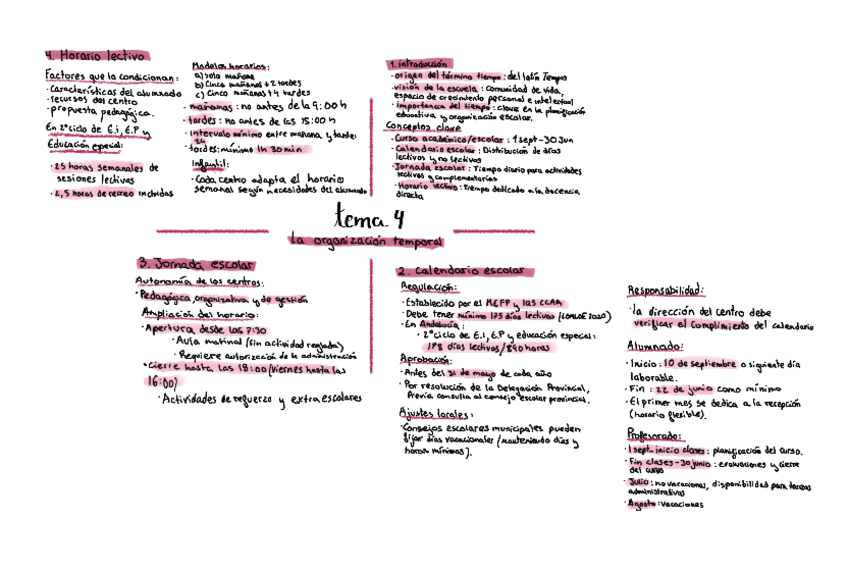 tema 4
la organización temporal
1. introducción
· origen del término tiempo: del latín Tempos
· visión de la escuela: comunidad de vida,
espacio de crecimiento personal e intelectual
· importancia del tiempo: clave en la planificación
educativa y organización escolar.
Conceptos clave
· Curso académico/escolar: 1 sept-30 Jun
· Calendario escolar: Distribución de días
lectivos y no lectivos
· Jornada escolar: Tiempo diario para actividades
lectivas y complementarias
· Horario lectivo: Tiempo dedicado a la docencia
directa
2. Calendario escolar
Regulación:
· Establecido por el MEFP y las CCAA
· Debe tener mínimo 175 días lectivos (LOMLOE 2020)
· En Andalucía:
· 2º ciclo de E.I, E.P y educación especial:
178 días lectivos/890 horas
Aprobación:
· Antes del 31 de mayo de cada año
· Por resolución de la Delegación Provincial,
Previa consulta al consejo escolar provincial.
Ajustes locales:
· Consejos escolares municipales pueden
fijar días vacacionales (manteniendo días y
horas mínimas).
Responsabilidad:
· la dirección del centro debe
verificar el cumplimiento del calendario
Alumnado:
· Inicio: 10 de septiembre o siguiente día
laborable.
· Fin: 22 de junio como mínimo
· El primer mes se dedica a la recepción
(horario flexible).
Profesorado:
· 1 sept-inicio clases: planificación del curso.
· Fin clases-30 junio: evaluaciones y cierre
del curso
· Julio: no vacaciones, disponibilidad para tareas
administrativas
· Agosto: vacaciones
3. Jornada escolar
Autonomía de los centros:
· Pedagógica, organizativa y de gestión
Ampliación del horario:
· Apertura desde las 7:30
· Aula matinal (sin actividad reglada)
· Requiere autorización de la administración
· Cierre hasta las 18:00 (viernes hasta las
16:00)
· Actividades de refuerzo y extraescolares
4. Horario lectivo
Factores que la condicionan:
· Características del alumnado
· recursos del centro
· propuesta pedagógica.
En 2º ciclo de E.i, E.P y
Educación especial:
· 25 horas semanales de
sesiones lectivas
· 2,5 horas de recreo incluidas
Modelos horarios:
a) solo mañana
b) Cinco mañanas + 2 tardes
c) Cinco mañanas + 4 tardes
· mañanas: no antes de la 9:00 h
· tardes: no antes de las 15:00 h
· intervalo mínimo entre mañana y tarde:
2h
· tardes: mínimo 1h 30 min
Infantil:
· Cada centro adapta el horario
semanal según necesidades del alumnado